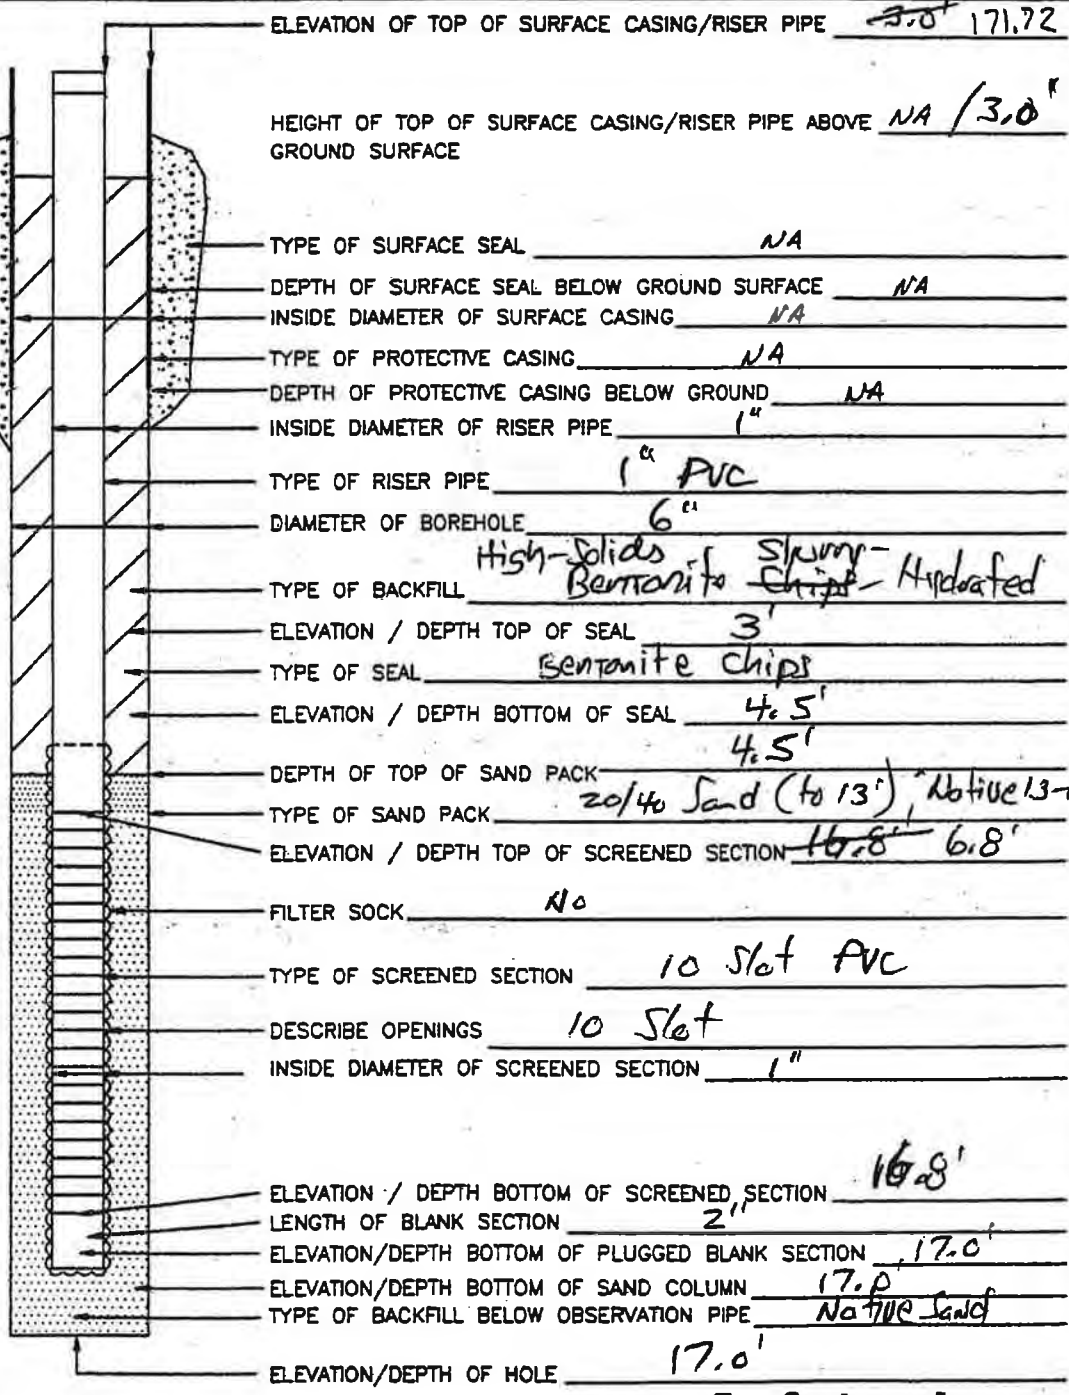 ELEVATION OF TOP OF SURFACE CASING/RISER PIPE 3.0' 171.72
HEIGHT OF TOP OF SURFACE CASING/RISER PIPE ABOVE NA / 3.0'
GROUND SURFACE
TYPE OF SURFACE SEAL NA
DEPTH OF SURFACE SEAL BELOW GROUND SURFACE NA
INSIDE DIAMETER OF SURFACE CASING NA
TYPE OF PROTECTIVE CASING NA
DEPTH OF PROTECTIVE CASING BELOW GROUND NA
INSIDE DIAMETER OF RISER PIPE 1"
TYPE OF RISER PIPE 1" PVC
DIAMETER OF BOREHOLE 6"
High-Solids Slurry-
TYPE OF BACKFILL Bentonite Chips Hydrated
ELEVATION / DEPTH TOP OF SEAL 3'
TYPE OF SEAL Bentonite Chips
ELEVATION / DEPTH BOTTOM OF SEAL 4.5'
DEPTH OF TOP OF SAND PACK 4.5'
TYPE OF SAND PACK 20/40 Sand (to 13'), Native 13-
ELEVATION / DEPTH TOP OF SCREENED SECTION 16.8' 6.8'
FILTER SOCK No
TYPE OF SCREENED SECTION 10 Slot PVC
DESCRIBE OPENINGS 10 Slot
INSIDE DIAMETER OF SCREENED SECTION 1"
ELEVATION / DEPTH BOTTOM OF SCREENED SECTION 16.8'
LENGTH OF BLANK SECTION 2"
ELEVATION/DEPTH BOTTOM OF PLUGGED BLANK SECTION 17.0'
ELEVATION/DEPTH BOTTOM OF SAND COLUMN 17.0'
TYPE OF BACKFILL BELOW OBSERVATION PIPE Native Sand
ELEVATION/DEPTH OF HOLE 17.0'